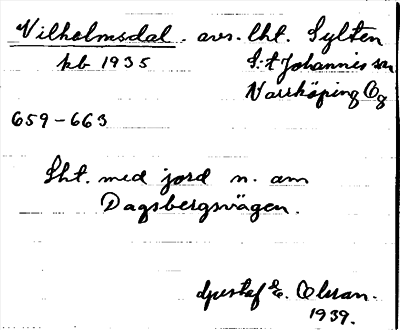 Vilholmsdal. avs. lht. Sylten
kb 1935 S:t Johannis sn
Norrköping Ög
659-663
Lht. med jord n. om
Dagsbergsvägen.
Gustaf E. Olsson.
1939.